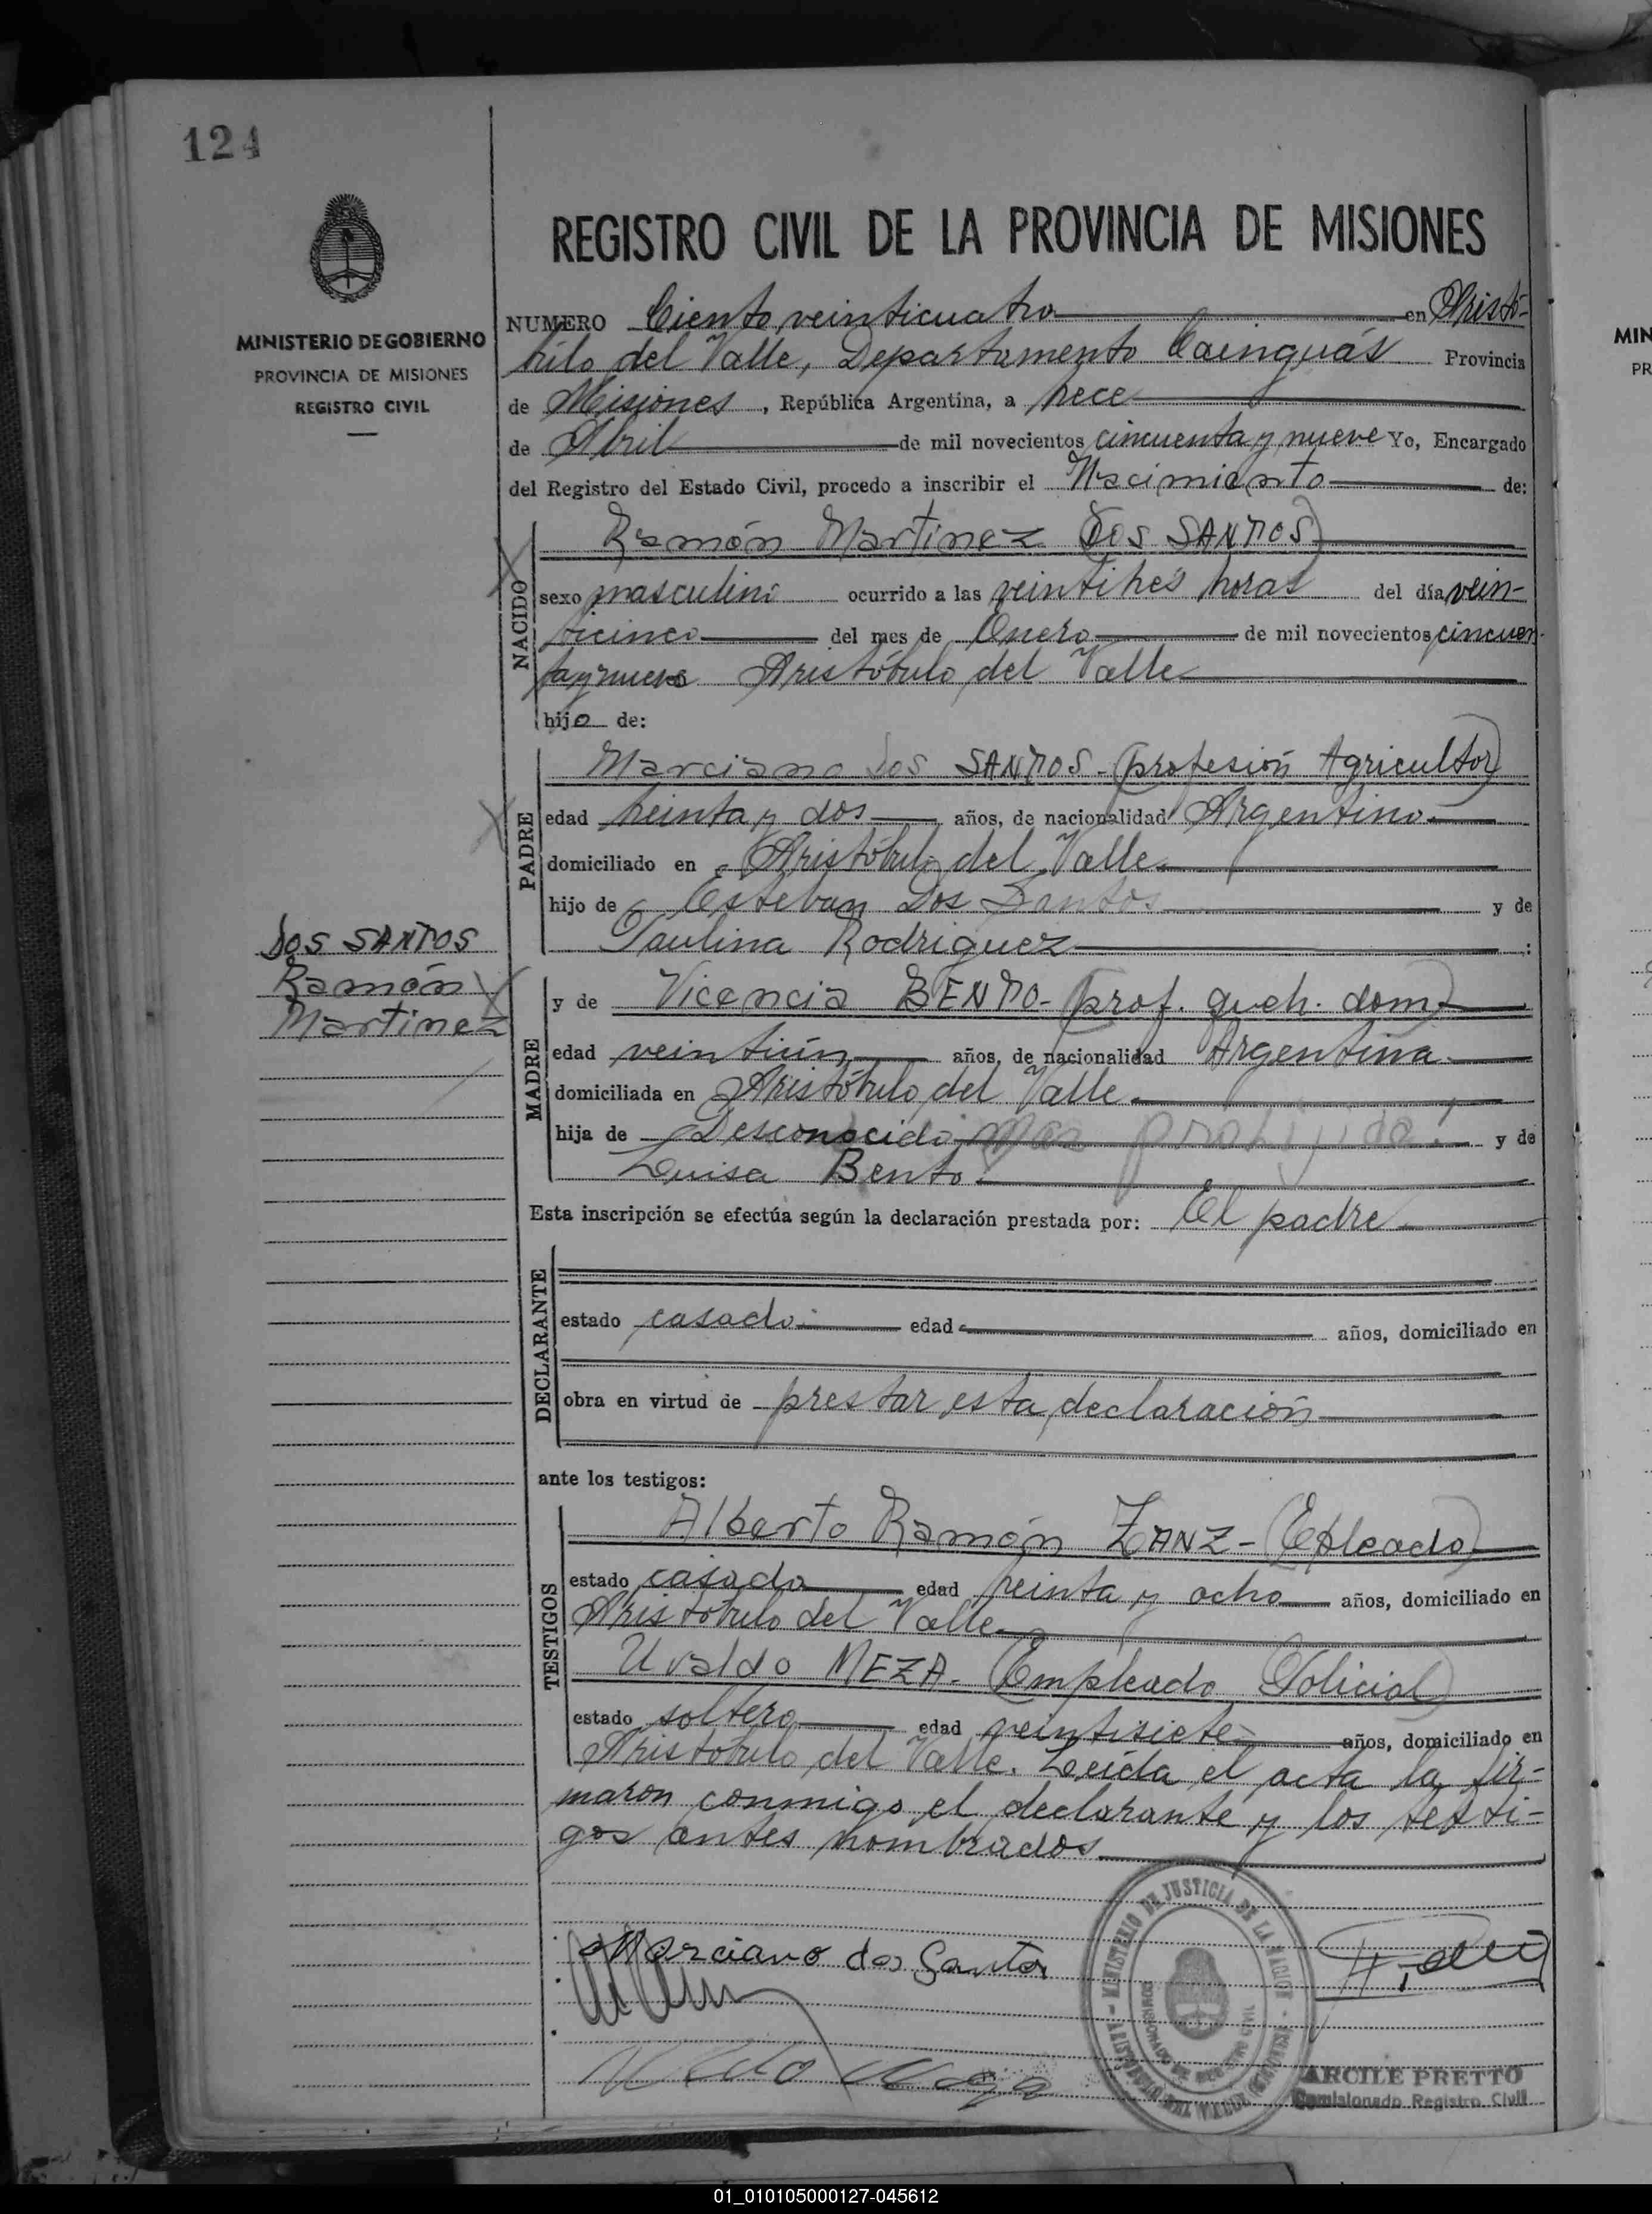 124
MINISTERIO DE GOBIERNO
PROVINCIA DE MISIONES
REGISTRO CIVIL
REGISTRO CIVIL DE LA PROVINCIA DE MISIONES
NUMERO Ciento veinticuatro en Aristó-
bulo del Valle, Departamento Cainguás Provincia
de Misiones, República Argentina, a trece
de Abril de mil novecientos cincuenta y nueve Yo, Encargado
del Registro del Estado Civil, procedo a inscribir el Nacimiento de:
NACIDO
Ramón Martinez (DOS SANTOS)
sexo masculino ocurrido a las veintitres horas del día vein-
ticinco del mes de Enero de mil novecientos cincuen-
ta y nueve Aristóbulo del Valle
hijo de:
PADRE
Marciano DOS SANTOS - (profesión Agricultor)
edad treinta y dos años, de nacionalidad Argentino
domiciliado en Aristóbulo del Valle
hijo de Esteban Dos Santos y de
Paulina Rodriguez :
DOS SANTOS
Ramón
Martinez
MADRE
y de Vicencia BENTO - (prof. queh. dom.)
edad veintiún años, de nacionalidad Argentina
domiciliada en Aristóbulo del Valle
hija de Desconocido y de
Luisa Bento
Esta inscripción se efectúa según la declaración prestada por: El padre
DECLARANTE
estado casado edad años, domiciliado en
obra en virtud de prestar esta declaración
ante los testigos:
TESTIGOS
Alberto Ramón ZANZ - (Epleado)
estado casado edad treinta y ocho años, domiciliado en
Aristóbulo del Valle
Uvaldo MEZA - (Empleado Policial)
estado soltero edad veintisiete años, domiciliado en
Aristóbulo del Valle. Leída el acta la fir-
maron conmigo el declarante y los testi-
gos antes nombrados
Marciano dos Santos
MINISTERIO DE JUSTICIA DE LA NACION
ARCILE PRETTO
Comisionado Registro Civil
01_010105000127-045612